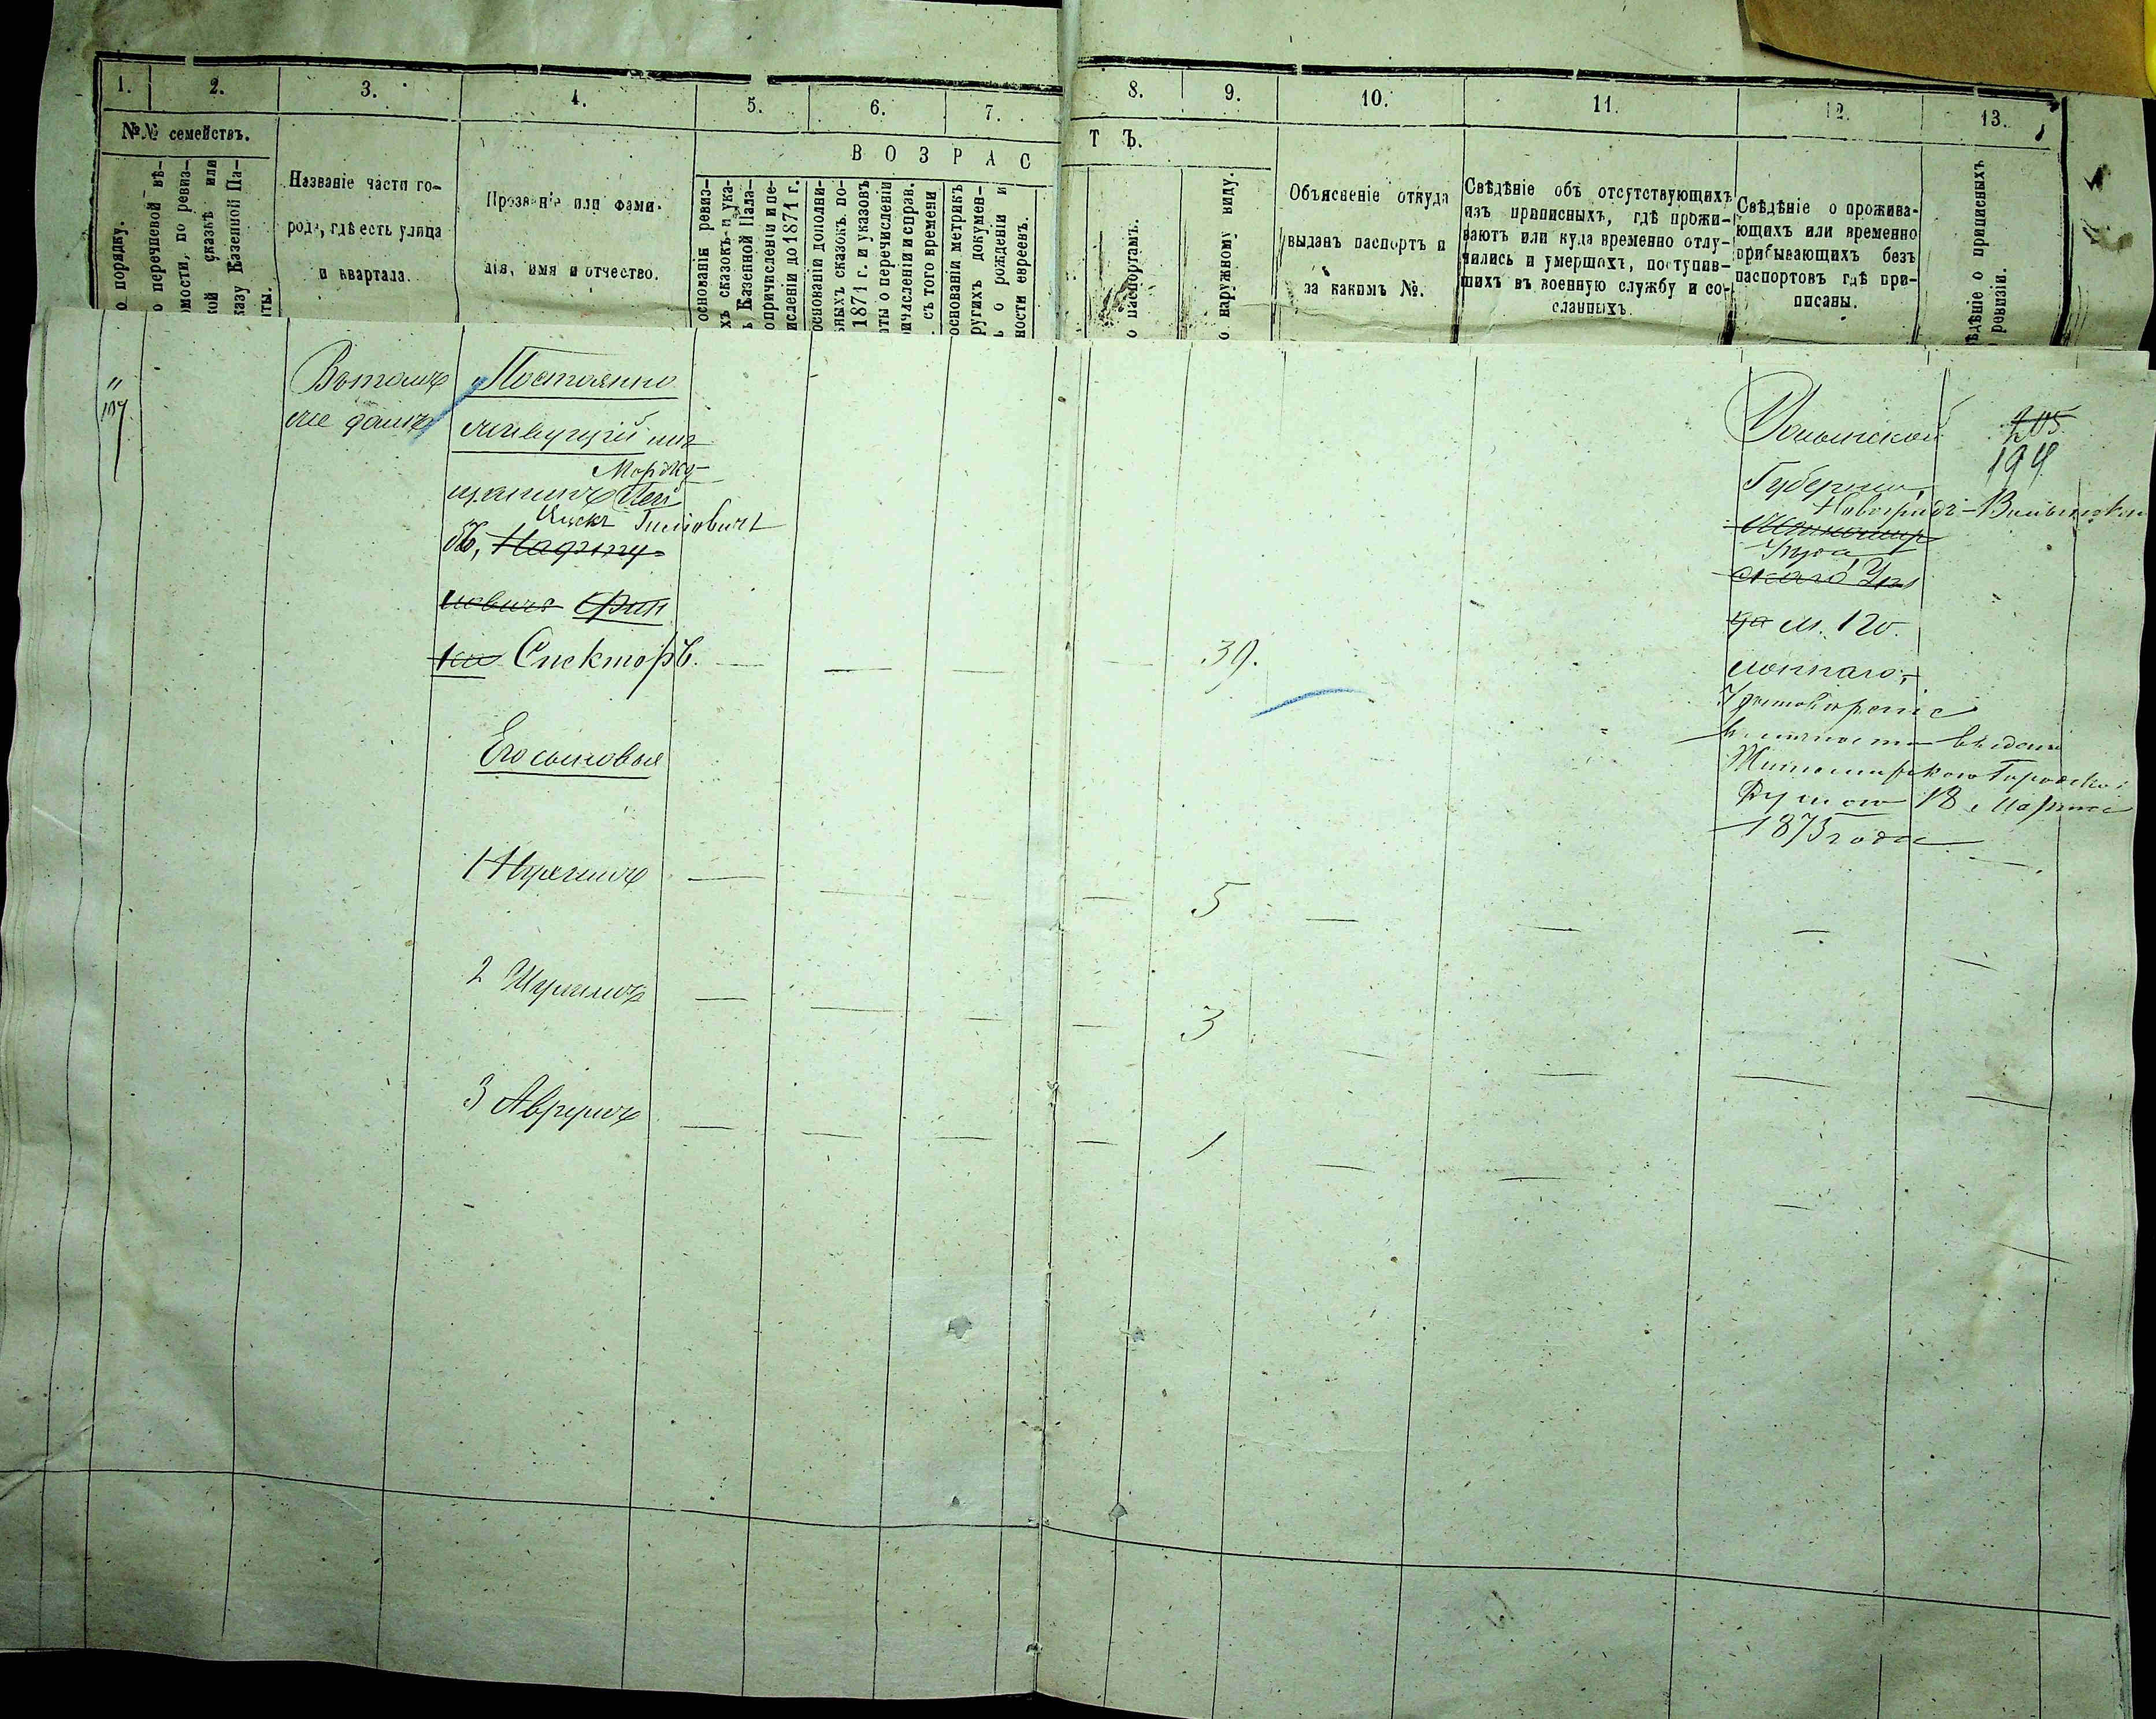 1. 2. 3. 4. 5. 6. 7. 8. 9. 10. 11. 12. 13.
№№ семействъ.
о порядку.
о перечневой вѣ-
мости, по ревиз-
кой сказкѣ или
казу Казенной Па-
аты.
Названіе части го-
рода, гдѣ есть улица
и квартала.
Прозваніе или фами-
лія, имя и отчество.
ВОЗРАС
ТЪ.
основаніи ревиз-
хъ сказокъ и ука-
ъ Казенной Пала-
опричисленіи и пе-
ислении до 1871 г.
основаніи дополни-
ьныхъ сказокъ по-
1871 г. и указовъ
аты о перечисленіи
ричисленіи и справ.
съ того времени
основаніи метрикъ
ругихъ докумен-
ъ о рожденіи и
ности евреевъ.
о паспортамъ.
о наружному виду.
Объясненіе откуда
выданъ паспортъ и
за какимъ №.
Свѣдѣніе объ отсутствующихъ
изъ приписныхъ, гдѣ прожи-
ваютъ или куда временно отлу-
чились и умершихъ, поступив-
шихъ въ военную службу и со-
сланныхъ.
Свѣдѣніе о прожива-
ющихъ или временно
прибывающихъ безъ
паспортовъ гдѣ при-
писаны.
ѣдѣніе о приписныхъ
ревизіи.
Въ томъ
же домѣ
Постоянно
живущій
Мордко-
щанинъ Лей
Гилиовичъ
Спекторъ.
39.
Его сыновья
1
5
2
3
3 Аврумъ
1
Волынской
205
194
Губерніи,
Новоградъ-Волынскаго
Уѣзда
м. По
лоннаго,
Удостовѣреніе
о личности выдано
Житомирскою Городскою
Думою 18 Марта
1875 года